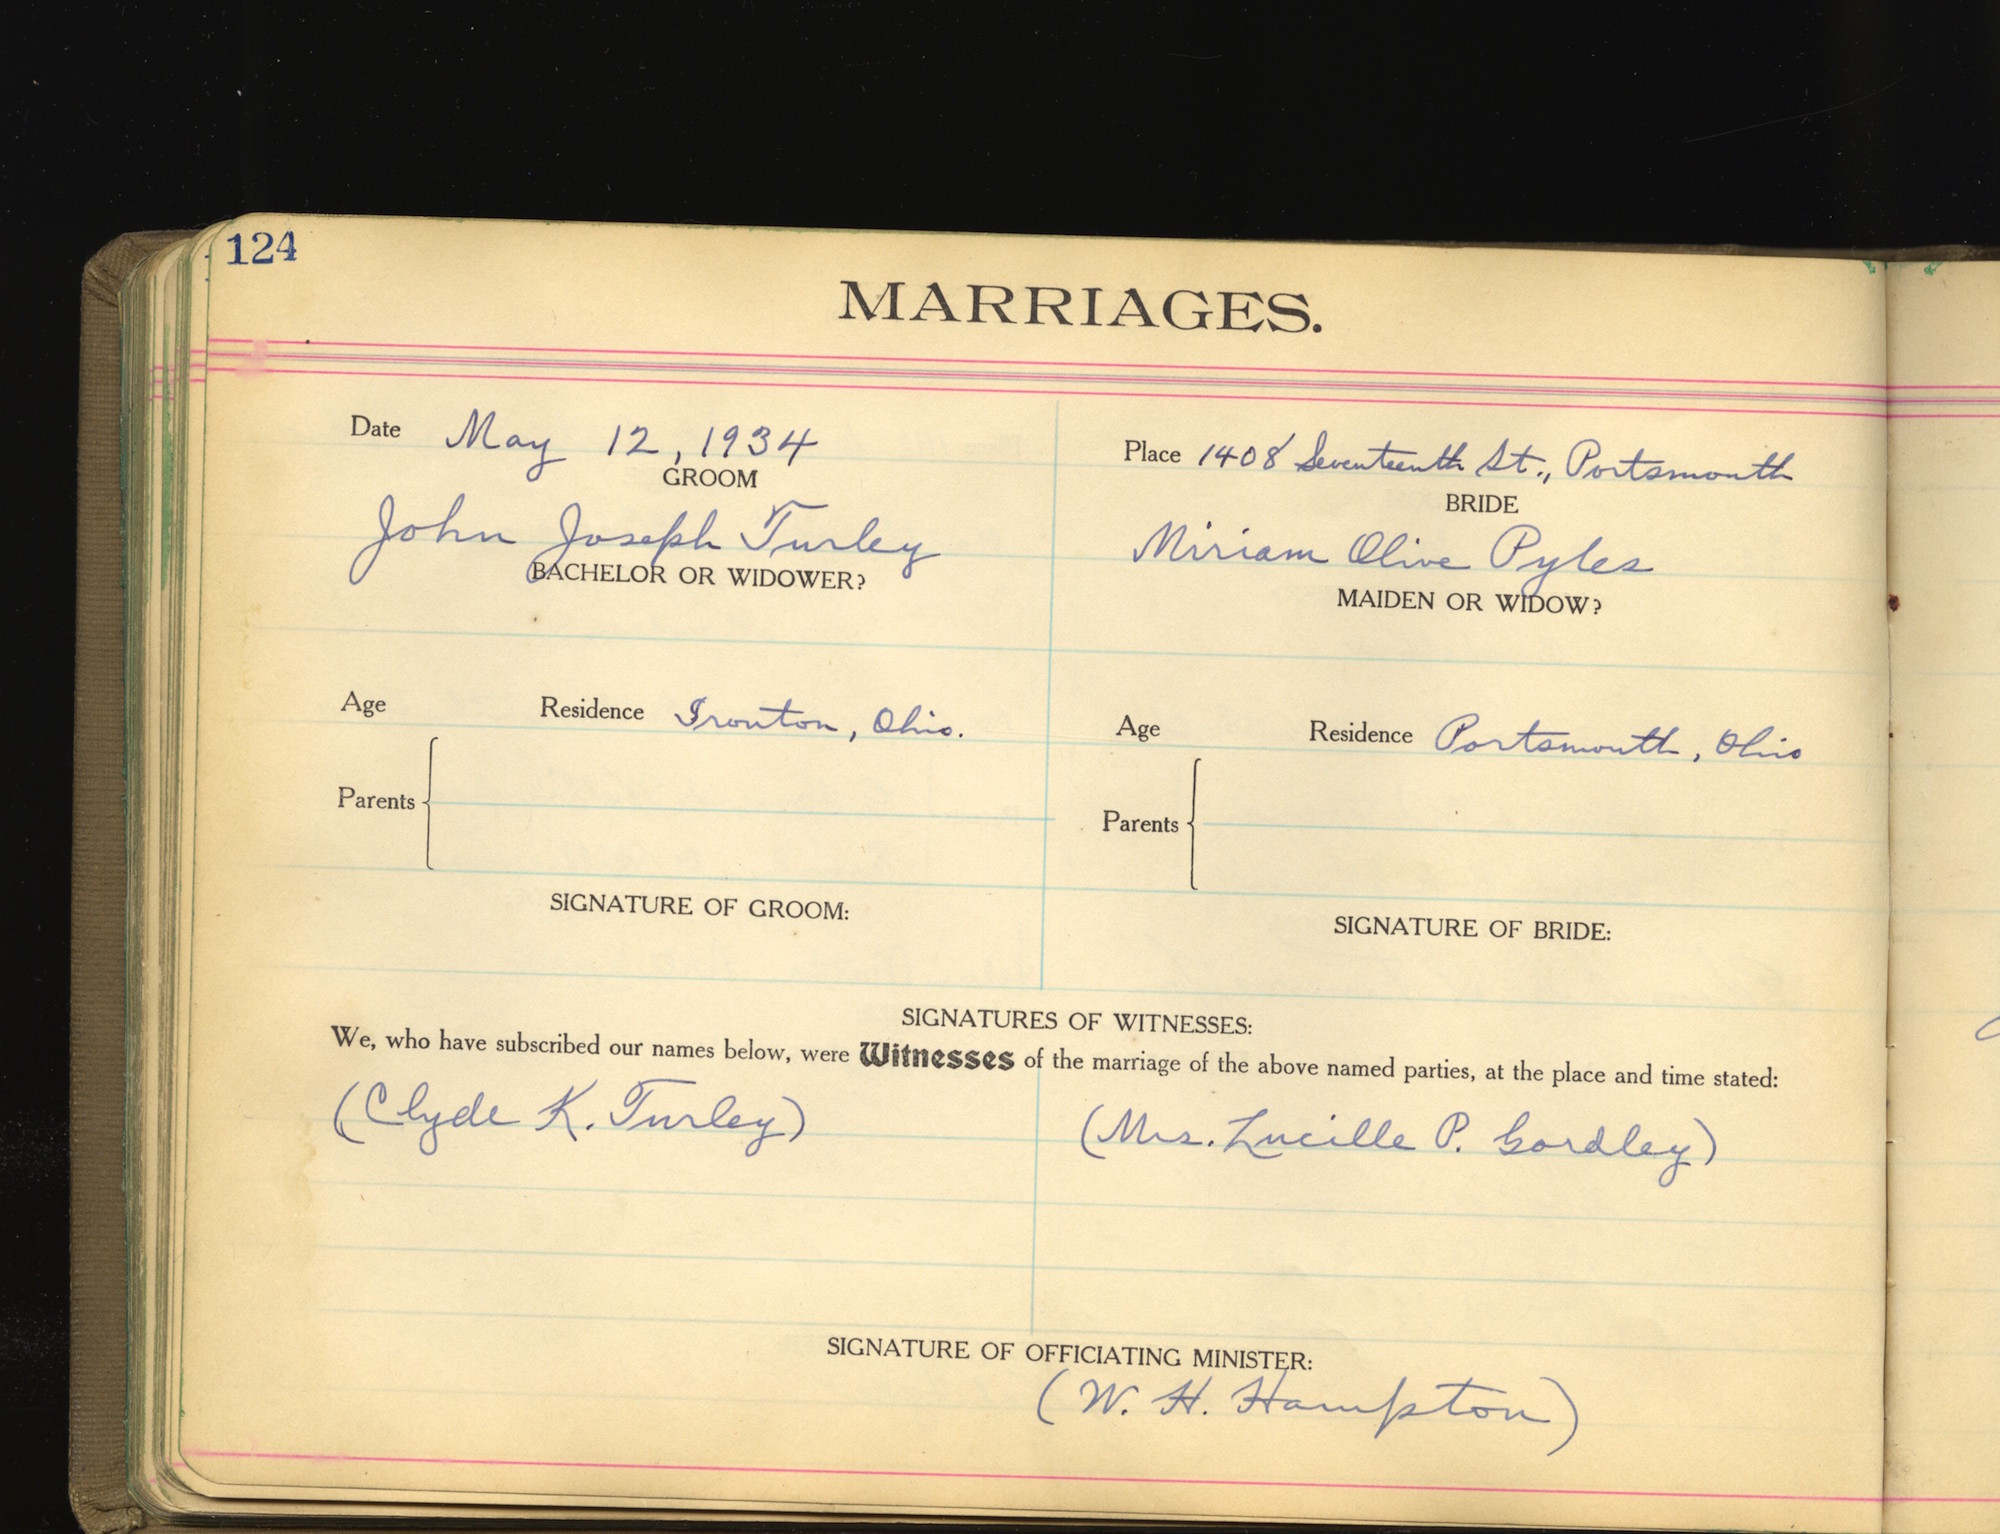 124
MARRIAGES.
Date May 12, 1934
Place 1408 Seventeenth St., Portsmouth
GROOM
BRIDE
John Joseph Turley
Miriam Olive Pyles
BACHELOR OR WIDOWER?
MAIDEN OR WIDOW?
Age Residence Ironton, Ohio.
Age Residence Portsmouth, Ohio
Parents
Parents
SIGNATURE OF GROOM:
SIGNATURE OF BRIDE:
SIGNATURES OF WITNESSES:
We, who have subscribed our names below, were Witnesses of the marriage of the above named parties, at the place and time stated:
(Clyde K. Turley)
(Mrs. Lucille P. Gordley)
SIGNATURE OF OFFICIATING MINISTER:
(W. H. Hampton)